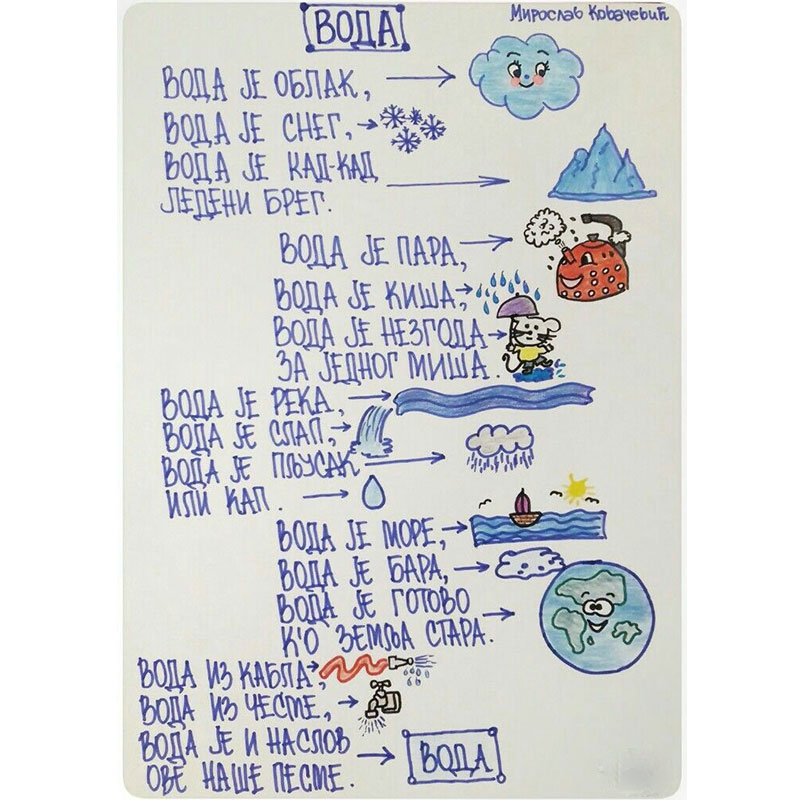 ВОДА
Мирослав Ковачевић
ВОДА ЈЕ ОБЛАК,
ВОДА ЈЕ СНЕГ,
ВОДА ЈЕ КАД-КАД
ЛЕДЕНИ БРЕГ.
ВОДА ЈЕ ПАРА,
ВОДА ЈЕ КИША,
ВОДА ЈЕ НЕЗГОДА
ЗА ЈЕДНОГ МИША.
ВОДА ЈЕ РЕКА,
ВОДА ЈЕ СЛАП,
ВОДА ЈЕ ПЉУСАК
ИЛИ КАП.
ВОДА ЈЕ МОРЕ,
ВОДА ЈЕ БАРА,
ВОДА ЈЕ ГОТОВО
К'О ЗЕМЉА СТАРА.
ВОДА ИЗ КАБЛА,
ВОДА ИЗ ЧЕСМЕ,
ВОДА ЈЕ И НАСЛОВ
ОВЕ НАШЕ ПЕСМЕ.
ВОДА